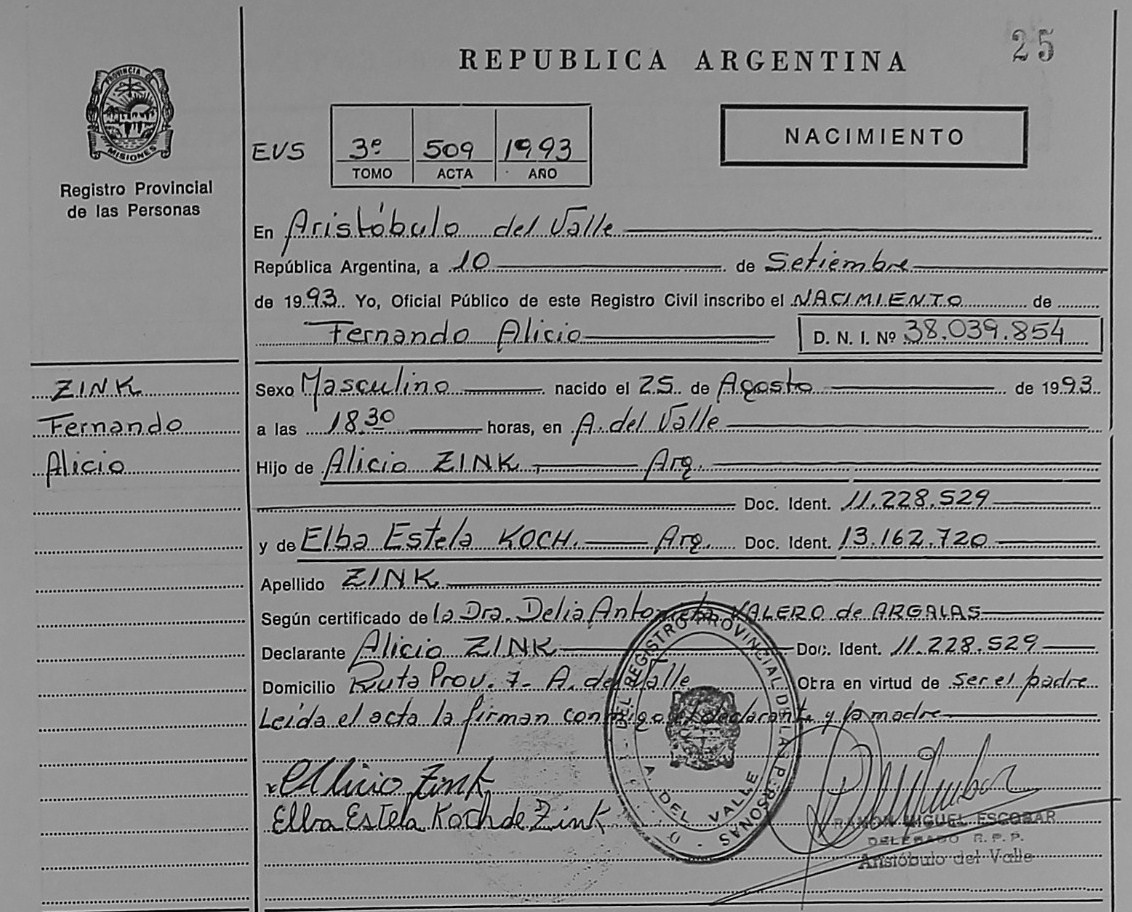 25
REPUBLICA ARGENTINA
PROVINCIA DE MISIONES
Registro Provincial
de las Personas
EVS 3º 509 1993
TOMO ACTA AÑO
NACIMIENTO
En Aristóbulo del Valle
República Argentina, a 10 de Setiembre
de 1993. Yo, Oficial Público de este Registro Civil inscribo el NACIMIENTO de
Fernando Alicio D. N. I. Nº 38.039.854
ZINK
Fernando
Alicio
Sexo Masculino nacido el 25 de Agosto de 1993.
a las 18.30 horas, en A. del Valle
Hijo de Alicio ZINK Arg.
Doc. Ident. 11.228.529
y de Elba Estela KOCH. Arg. Doc. Ident. 13.162.720
Apellido ZINK
Según certificado de la Dra. Delia Antonieta VALERO de ARGALAS
Declarante Alicio ZINK Doc. Ident. 11.228.529
Domicilio Ruta Prov. 7 - A. del Valle Obra en virtud de ser el padre
Leída el acta la firman conmigo el declarante y la madre
Alicio Zink
Elba Estela Koch de Zink
DEL REGISTRO PROVINCIAL DE LAS PERSONAS
A. DEL VALLE
RAMON MIGUEL ESCOBAR
DELEGADO R.P.P.
Aristóbulo del Valle